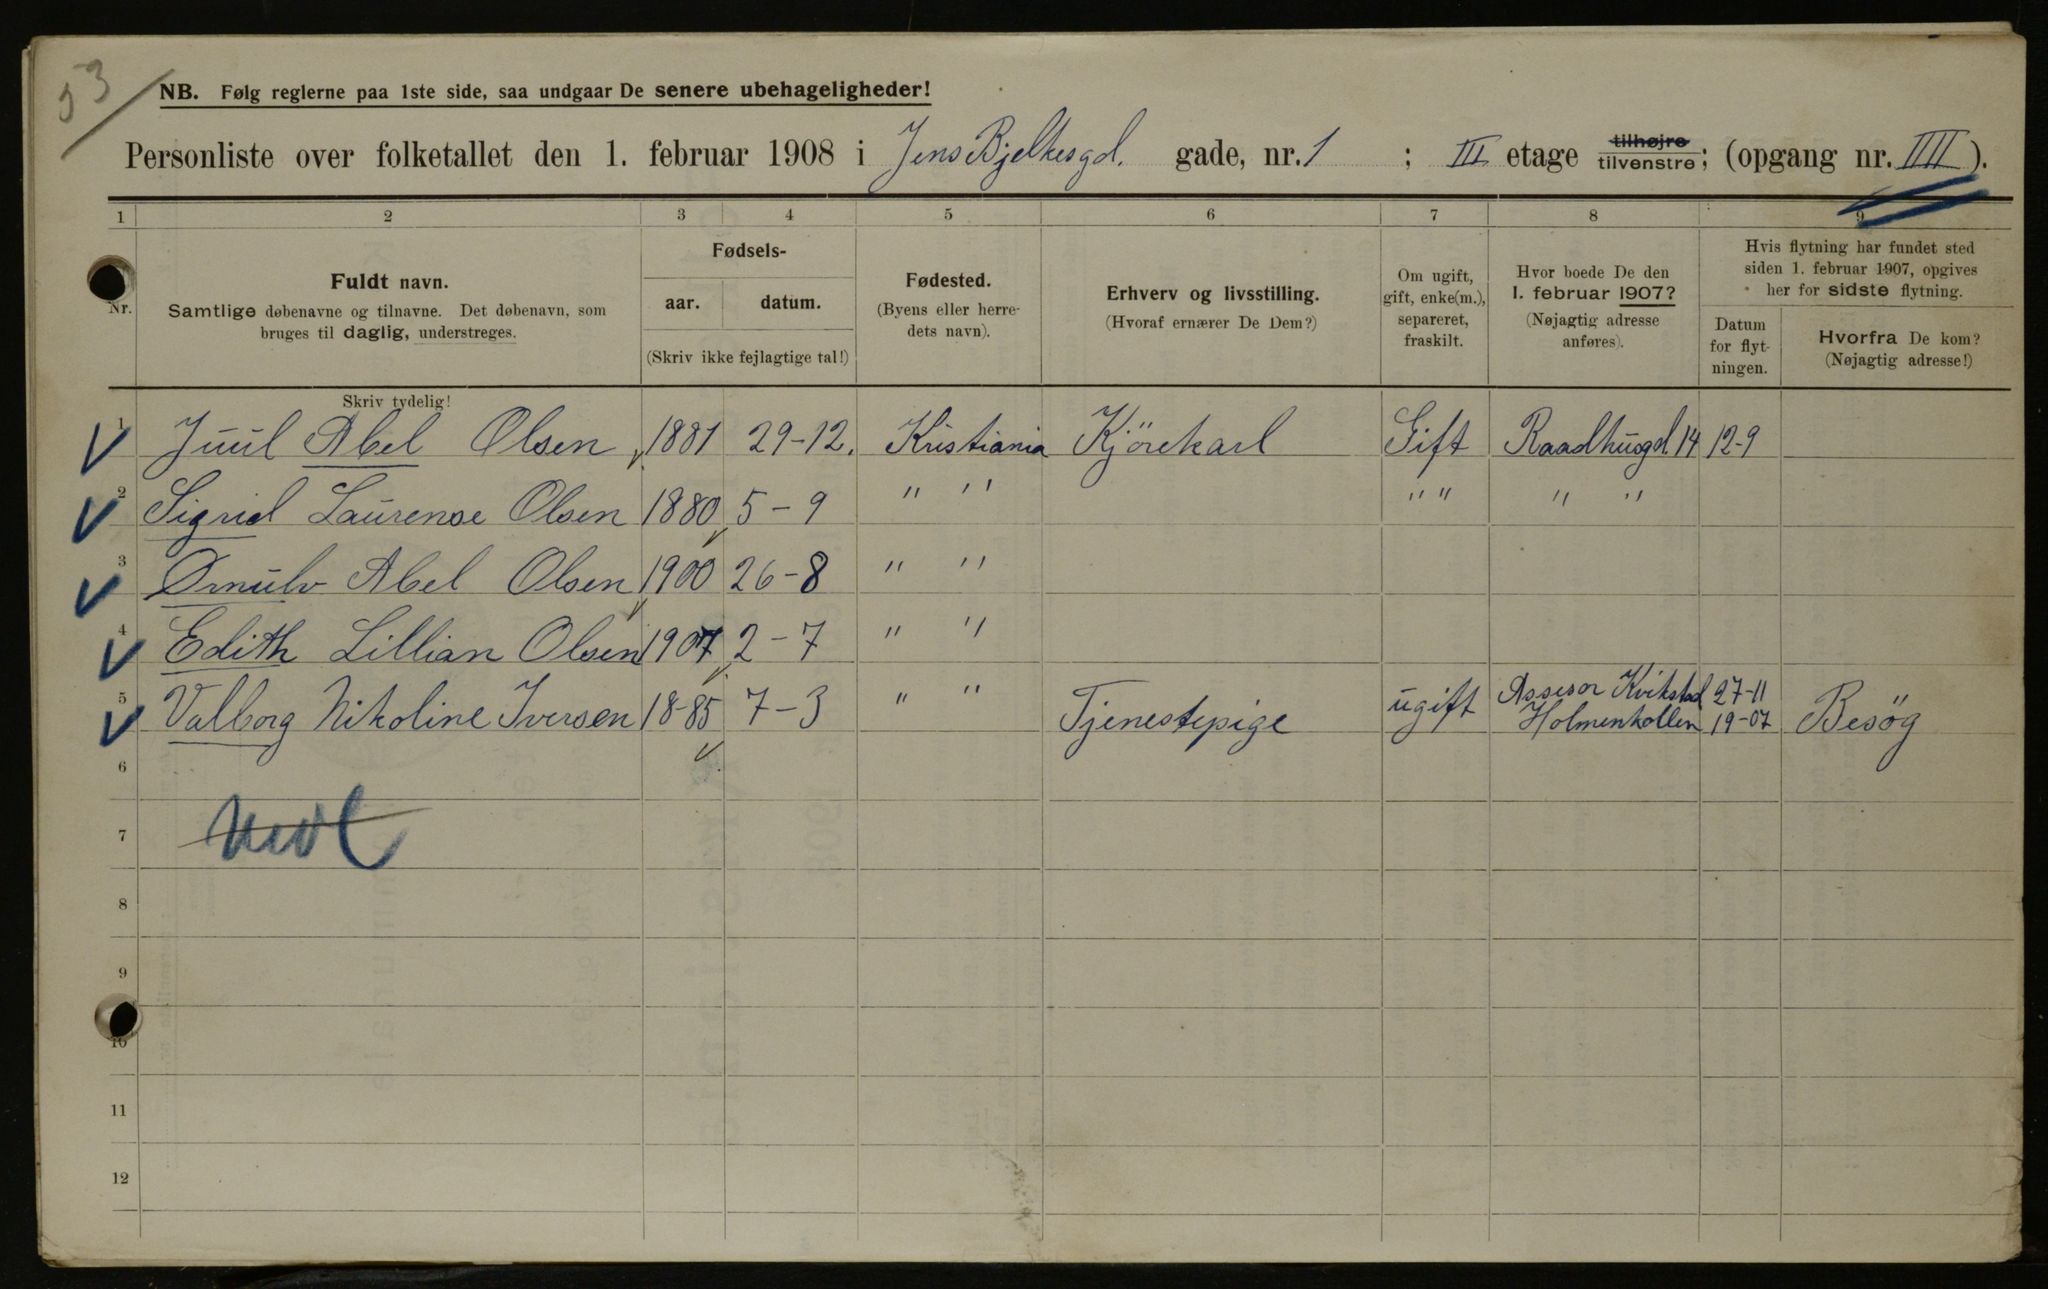 53
NB. Følg reglerne paa 1ste side, saa undgaar De senere ubehageligheder!
Personliste over folketallet den 1. februar 1908 i Jens Bjelkesgd. gade, nr. 1 ; III etage tilhøjre tilvenstre; (opgang nr. IIII).
1 2 3 4 5 6 7 8 9
Nr.
Fuldt navn.
Samtlige døbenavne og tilnavne. Det døbenavn, som
bruges til daglig, understreges.
Skriv tydelig!
Fødsels-
aar. datum.
(Skriv ikke fejlagtige tal!)
Fødested.
(Byens eller herre-
dets navn).
Erhverv og livsstilling.
(Hvoraf ernærer De Dem?)
Om ugift,
gift, enke(m.),
separeret,
fraskilt.
Hvor boede De den
1. februar 1907?
(Nøjagtig adresse
anføres).
Hvis flytning har fundet sted
siden 1. februar 1907, opgives
her for sidste flytning.
Datum
for flyt-
ningen.
Hvorfra De kom?
(Nøjagtig adresse!)
1 Juul Abel Olsen 1881 29-12. Kristiania Kjörekarl Gift Raadhusgd. 14 12-9
2 Sigrid Laurense Olsen 1880 5-9 " " " " " "
3 Ørnulv Abel Olsen 1900 26-8 " "
4 Edith Lillian Olsen 1907 2-7 " "
5 Valborg Nikoline Iversen 18-85 7-3 " " Tjenestepige ugift Assesor Kvikstad 27-11
Holmenkollen 19-07 Besøg
6
7
8
9
10
11
12